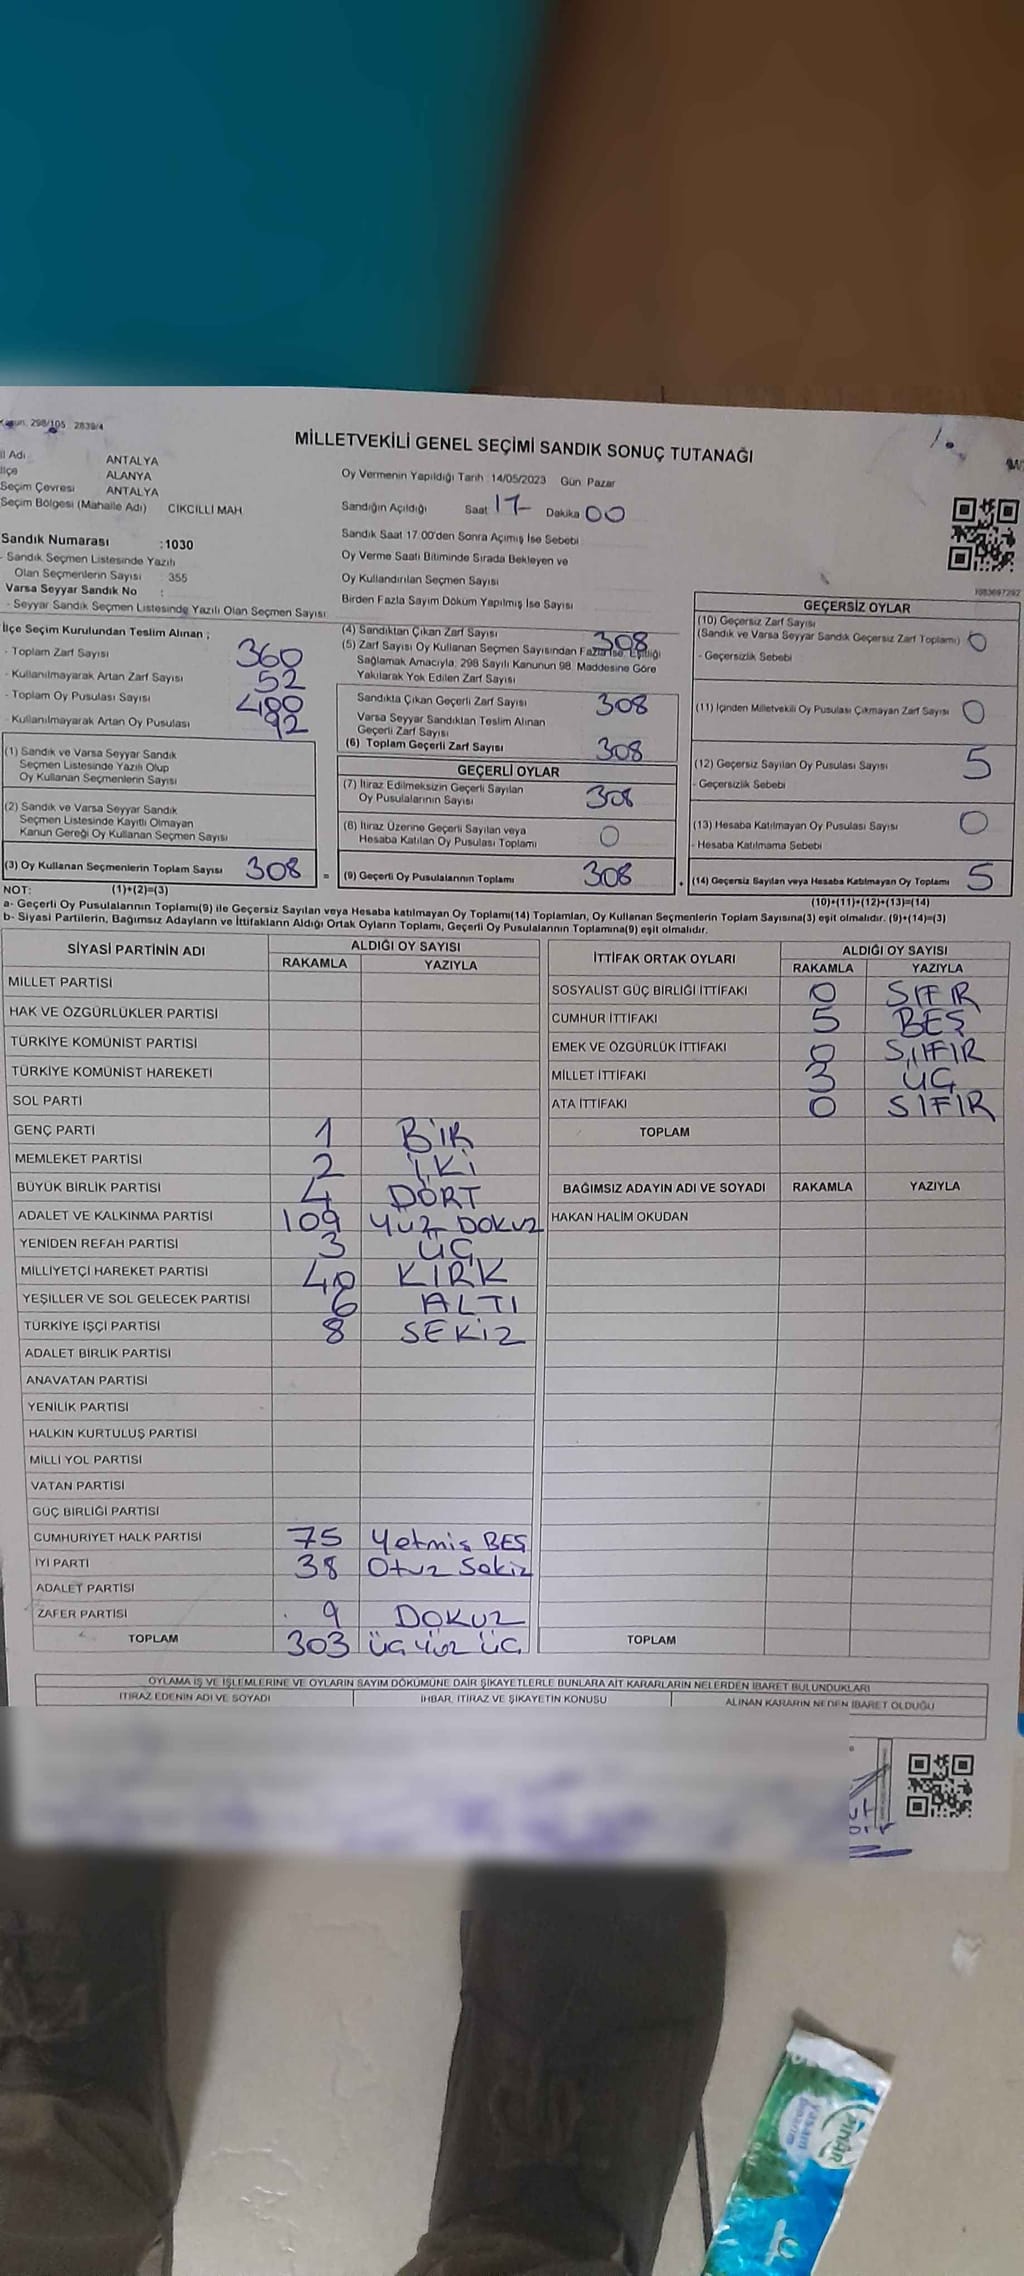 298/105 2839/4
MİLLETVEKİLİ GENEL SEÇİMİ SANDIK SONUÇ TUTANAĞI
İl Adı : ANTALYA
İlçe ALANYA
Seçim Çevresi ANTALYA
Seçim Bölgesi (Mahalle Adı) CIKCILLI MAH
Sandık Numarası :1030
- Sandık Seçmen Listesinde Yazılı
Olan Seçmenlerin Sayısı : 355
Varsa Seyyar Sandık No :
- Seyyar Sandık Seçmen Listesinde Yazılı Olan Seçmen Sayısı
Oy Vermenin Yapıldığı Tarih :14/05/2023 Gün: Pazar
Sandığın Açıldığı Saat 17- Dakika 00
Sandık Saat 17.00'den Sonra Açımış İse Sebebi
Oy Verme Saati Bitiminde Sırada Bekleyen ve
Oy Kullandırılan Seçmen Sayısı
Birden Fazla Sayım Döküm Yapılmış İse Sayısı
1083697292
İlçe Seçim Kurulundan Teslim Alınan ;
- Toplam Zarf Sayısı 360
- Kullanılmayarak Artan Zarf Sayısı 52
- Toplam Oy Pusulası Sayısı 480
- Kullanılmayarak Artan Oy Pusulası 92
(1) Sandık ve Varsa Seyyar Sandık
Seçmen Listesinde Yazılı Olup
Oy Kullanan Seçmenlerin Sayısı
(2) Sandık ve Varsa Seyyar Sandık
Seçmen Listesinde Kayıtlı Olmayan
Kanun Gereği Oy Kullanan Seçmen Sayısı
(3) Oy Kullanan Seçmenlerin Toplam Sayısı 308 =
(4) Sandıktan Çıkan Zarf Sayısı 308
(5) Zarf Sayısı Oy Kullanan Seçmen Sayısından Fazla İse, Eşitliği
Sağlamak Amacıyla, 298 Sayılı Kanunun 98. Maddesine Göre
Yakılarak Yok Edilen Zarf Sayısı
Sandıkta Çıkan Geçerli Zarf Sayısı 308
Varsa Seyyar Sandıktan Teslim Alınan
Geçerli Zarf Sayısı
(6) Toplam Geçerli Zarf Sayısı 308
GEÇERLİ OYLAR
(7) İtiraz Edilmeksizin Geçerli Sayılan
Oy Pusulalarının Sayısı 308
(8) İtiraz Üzerine Geçerli Sayılan veya
Hesaba Katılan Oy Pusulası Toplamı 0
(9) Geçerli Oy Pusulalarının Toplamı 308
GEÇERSİZ OYLAR
(10) Geçersiz Zarf Sayısı
(Sandık ve Varsa Seyyar Sandık Geçersiz Zarf Toplamı) 0
- Geçersizlik Sebebi
(11) İçinden Milletvekili Oy Pusulası Çıkmayan Zarf Sayısı 0
(12) Geçersiz Sayılan Oy Pusulası Sayısı 5
- Geçersizlik Sebebi
(13) Hesaba Katılmayan Oy Pusulası Sayısı 0
- Hesaba Katılmama Sebebi
(14) Geçersiz Sayılan veya Hesaba Katılmayan Oy Toplamı 5
NOT: (1)+(2)=(3) (10)+(11)+(12)+(13)=(14)
a- Geçerli Oy Pusulalarının Toplamı(9) ile Geçersiz Sayılan veya Hesaba katılmayan Oy Toplamı(14) Toplamları, Oy Kullanan Seçmenlerin Toplam Sayısına(3) eşit olmalıdır. (9)+(14)=(3)
b- Siyasi Partilerin, Bağımsız Adayların ve İttifakların Aldığı Ortak Oyların Toplamı, Geçerli Oy Pusulalarının Toplamına(9) eşit olmalıdır.
SİYASİ PARTİNİN ADI ALDIĞI OY SAYISI
RAKAMLA YAZIYLA
MİLLET PARTİSİ
HAK VE ÖZGÜRLÜKLER PARTİSİ
TÜRKİYE KOMÜNİST PARTİSİ
TÜRKİYE KOMÜNİST HAREKETİ
SOL PARTİ
GENÇ PARTİ 1 BİR
MEMLEKET PARTİSİ 2 İKİ
BÜYÜK BİRLİK PARTİSİ 4 DÖRT
ADALET VE KALKINMA PARTİSİ 109 YÜZ DOKUZ
YENİDEN REFAH PARTİSİ 3 ÜÇ
MİLLİYETÇİ HAREKET PARTİSİ 40 KIRK
YEŞİLLER VE SOL GELECEK PARTİSİ 6 ALTI
TÜRKİYE İŞÇİ PARTİSİ 8 SEKİZ
ADALET BİRLİK PARTİSİ
ANAVATAN PARTİSİ
YENİLİK PARTİSİ
HALKIN KURTULUŞ PARTİSİ
MİLLİ YOL PARTİSİ
VATAN PARTİSİ
GÜÇ BİRLİĞİ PARTİSİ
CUMHURİYET HALK PARTİSİ 75 Yetmiş BEŞ
İYİ PARTİ 38 Otuz Sekiz
ADALET PARTİSİ
ZAFER PARTİSİ 9 DOKUZ
TOPLAM 303 ÜÇ YÜZ ÜÇ
İTTİFAK ORTAK OYLARI ALDIĞI OY SAYISI
RAKAMLA YAZIYLA
SOSYALİST GÜÇ BİRLİĞİ İTTİFAKI 0 SIFIR
CUMHUR İTTİFAKI 5 BEŞ
EMEK VE ÖZGÜRLÜK İTTİFAKI 0 SIFIR
MİLLET İTTİFAKI 3 ÜÇ
ATA İTTİFAKI 0 SIFIR
TOPLAM
BAĞIMSIZ ADAYIN ADI VE SOYADI RAKAMLA YAZIYLA
HAKAN HALİM OKUDAN
TOPLAM
OYLAMA İŞ VE İŞLEMLERİNE VE OYLARIN SAYIM DÖKÜMÜNE DAİR ŞİKAYETLERLE BUNLARA AİT KARARLARIN NELERDEN İBARET BULUNDUKLARI
İTİRAZ EDENİN ADI VE SOYADI İHBAR, İTİRAZ VE ŞİKAYETİN KONUSU ALINAN KARARIN NEDEN İBARET OLDUĞU
PINAR